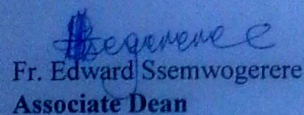 Fr. Edward Ssemwogerere
Associate Dean